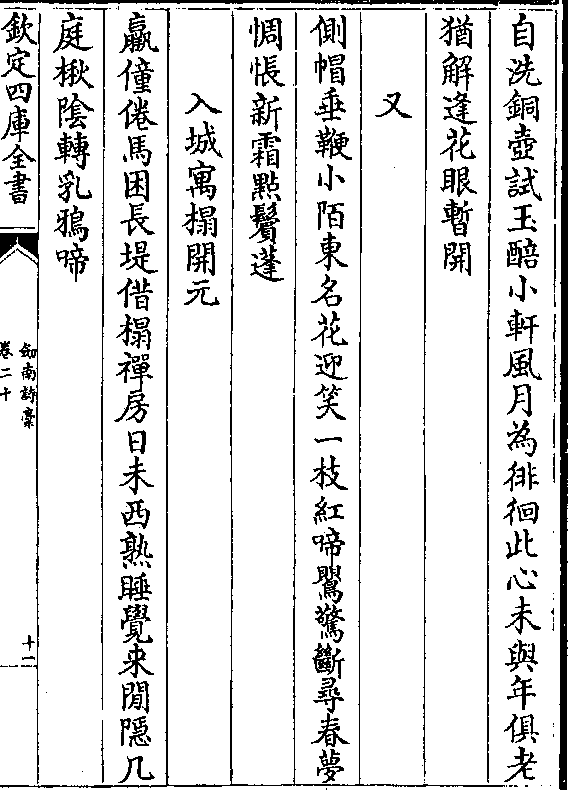 自洗銅壺試玉醅小軒風月為徘徊此心未與年俱老
猶解逢花眼暫開
又
側帽垂鞭小陌東名花迎笑一枝紅啼鶯驚斷尋春夢
惆悵新霜點鬢蓬
入城寓榻開元
羸僮倦馬困長堤借榻禪房日未西熟睡覺来閒隠几
庭楸隂轉乳鴉啼
欽定四庫全書
劒南詩藳
卷二十
十二